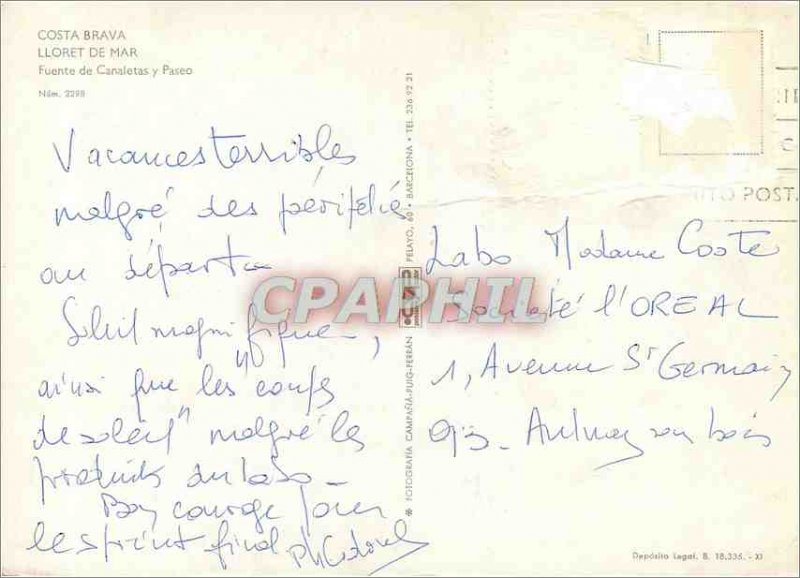 COSTA BRAVA
LLORET DE MAR
Fuente de Canaletas y Paseo
Núm. 2298
Vacances terribles
malgré des péripéties
au départ -
Soleil magnifique,
ainsi que les "coups
de soleil" malgré les
produits du labo -
Bon courage pour
le sprint final
FOTOGRAFIA CAMPAÑÁ-PUIG-FERRÁN
PELAYO, 60 • BARCELONA • TEL. 236 92 21
CPAPHIL
ITO POST
Labo Madame Coste
Société l'OREAL
1, Avenue St Germain
93 - Aulnay sous bois
Depósito Legal. B. 18.336. - XI